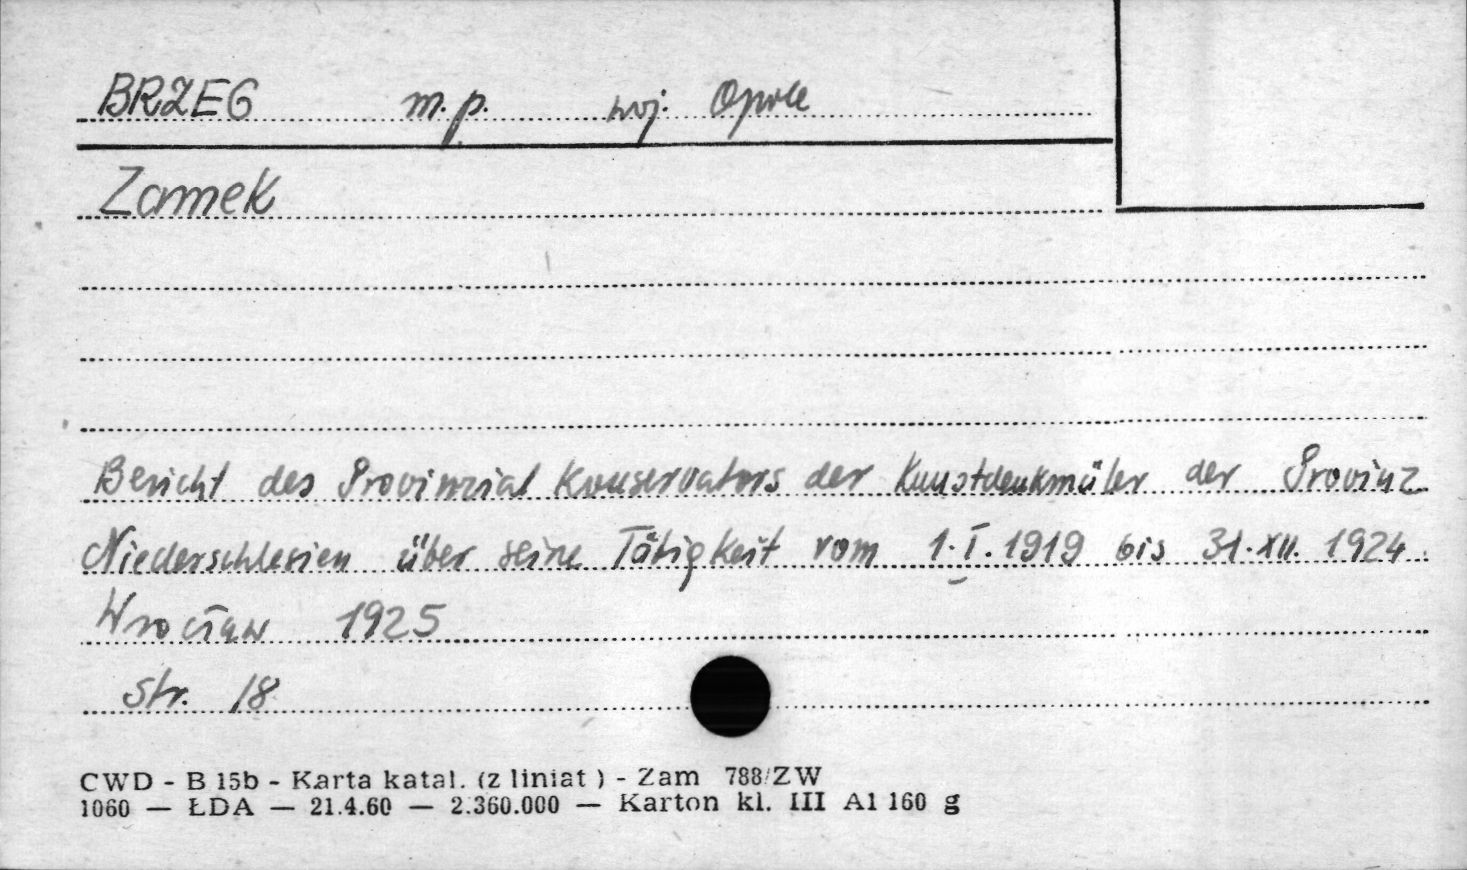 BRZEG m.p. woj. Opole
Zamek
Bericht des Provinzial Konservators der Kunstdenkmäler der Provinz
Niederschlesien über seine Tätigkeit vom 1.I.1919 bis 31.XII.1924.
Wrocław 1925
str. 18
CWD - B 15b - Karta katal. (z liniat ) - Zam 788/ZW
1060 — ŁDA — 21.4.60 — 2.360.000 — Karton kl. III A1 160 g